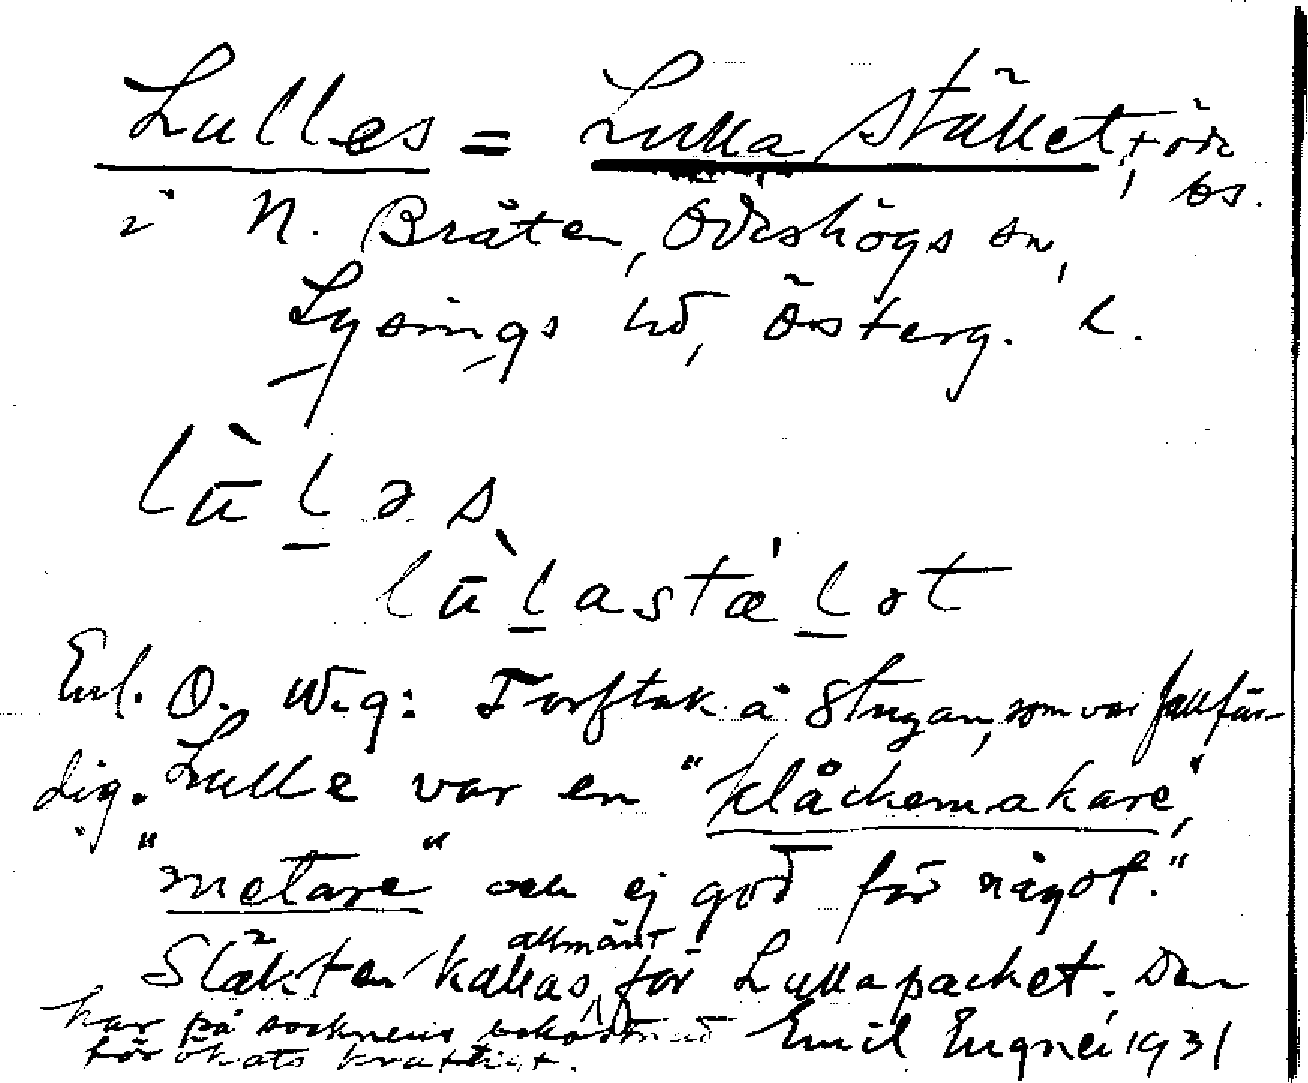 Lulles = Lulla stället, †öde
bs.
i N. Bråten, Ödeshögs sn,
Lysings hd, Österg. l.
lùl̠əs
lùl̠astæ´l̠ət
Enl. O. W-g: Torftak å stugan, som var fallfär-
dig. Lulle var en "klåckemakare",
"metare" och ej god för något."
Släkten kallas allmänt för Lullapacket. Den
har på socknens bekostnad
förökats kraftigt. Emil Engnei 1931